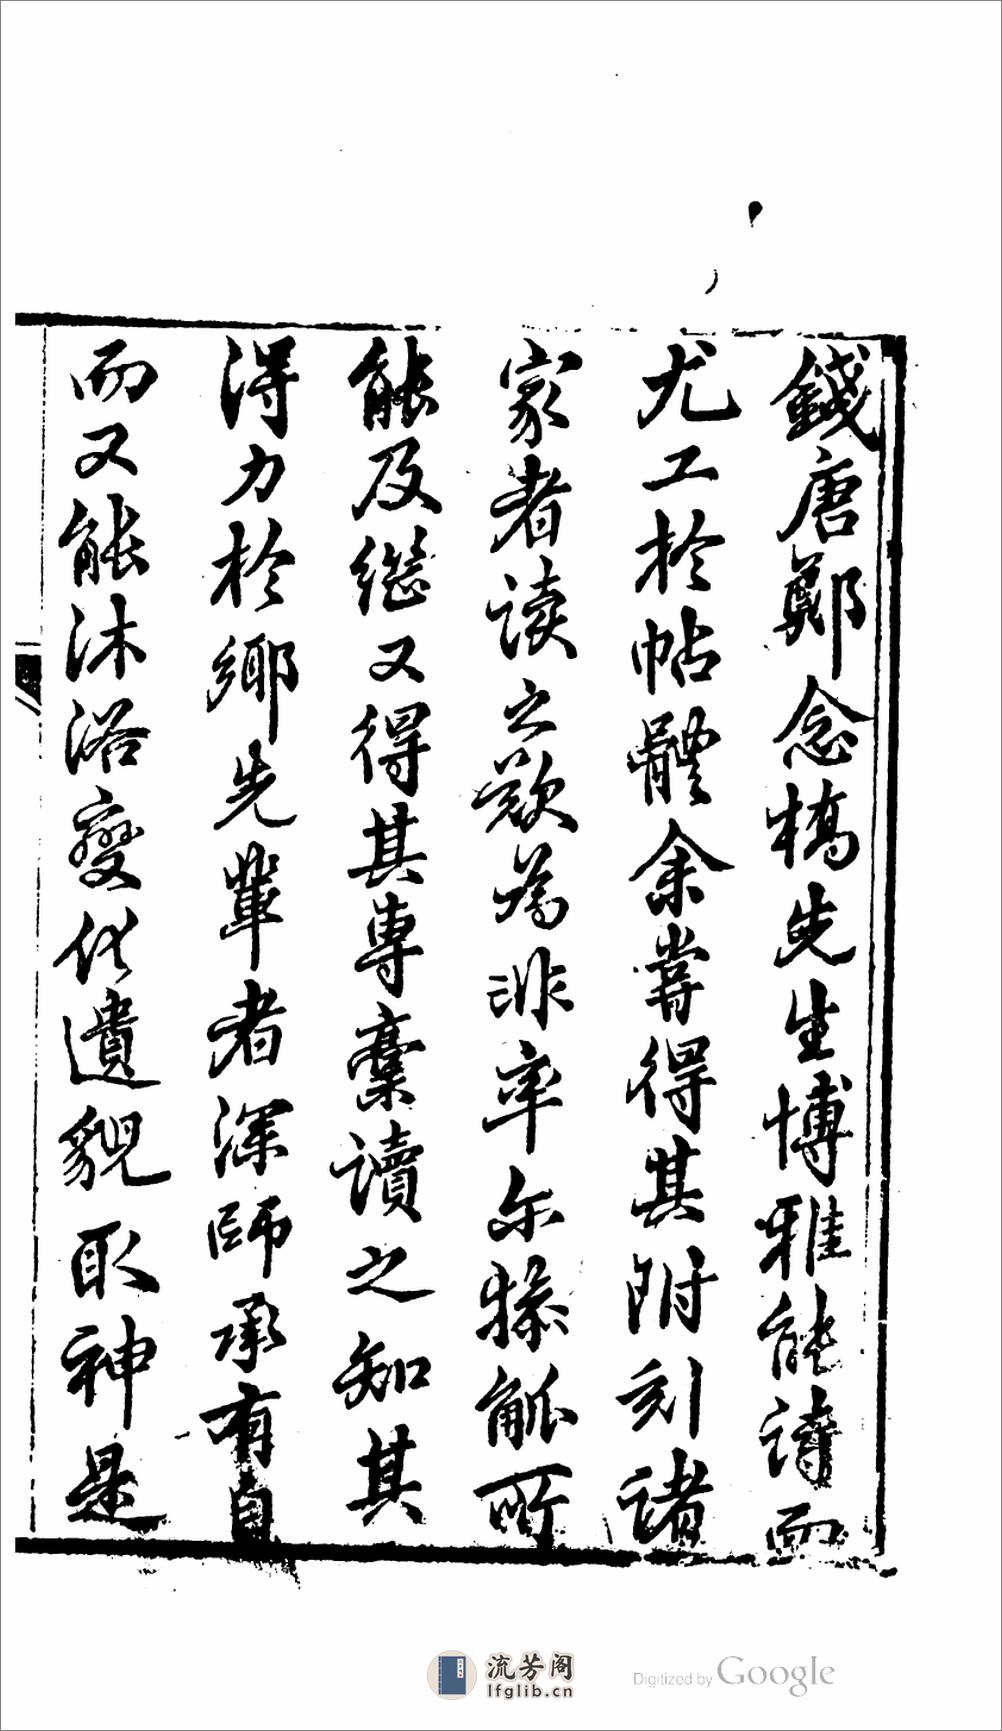 錢唐鄭念橋先生博雅能詩而
尤工於帖體余嘗得其附刻諸
家者读之歎為非率尔操觚所
能及继又得其專稾讀之知其
得力於鄉先輩者深師承有自
而又能沐浴變化遺貌取神是
流芳阁
lfglib.cn
Digitized by Google